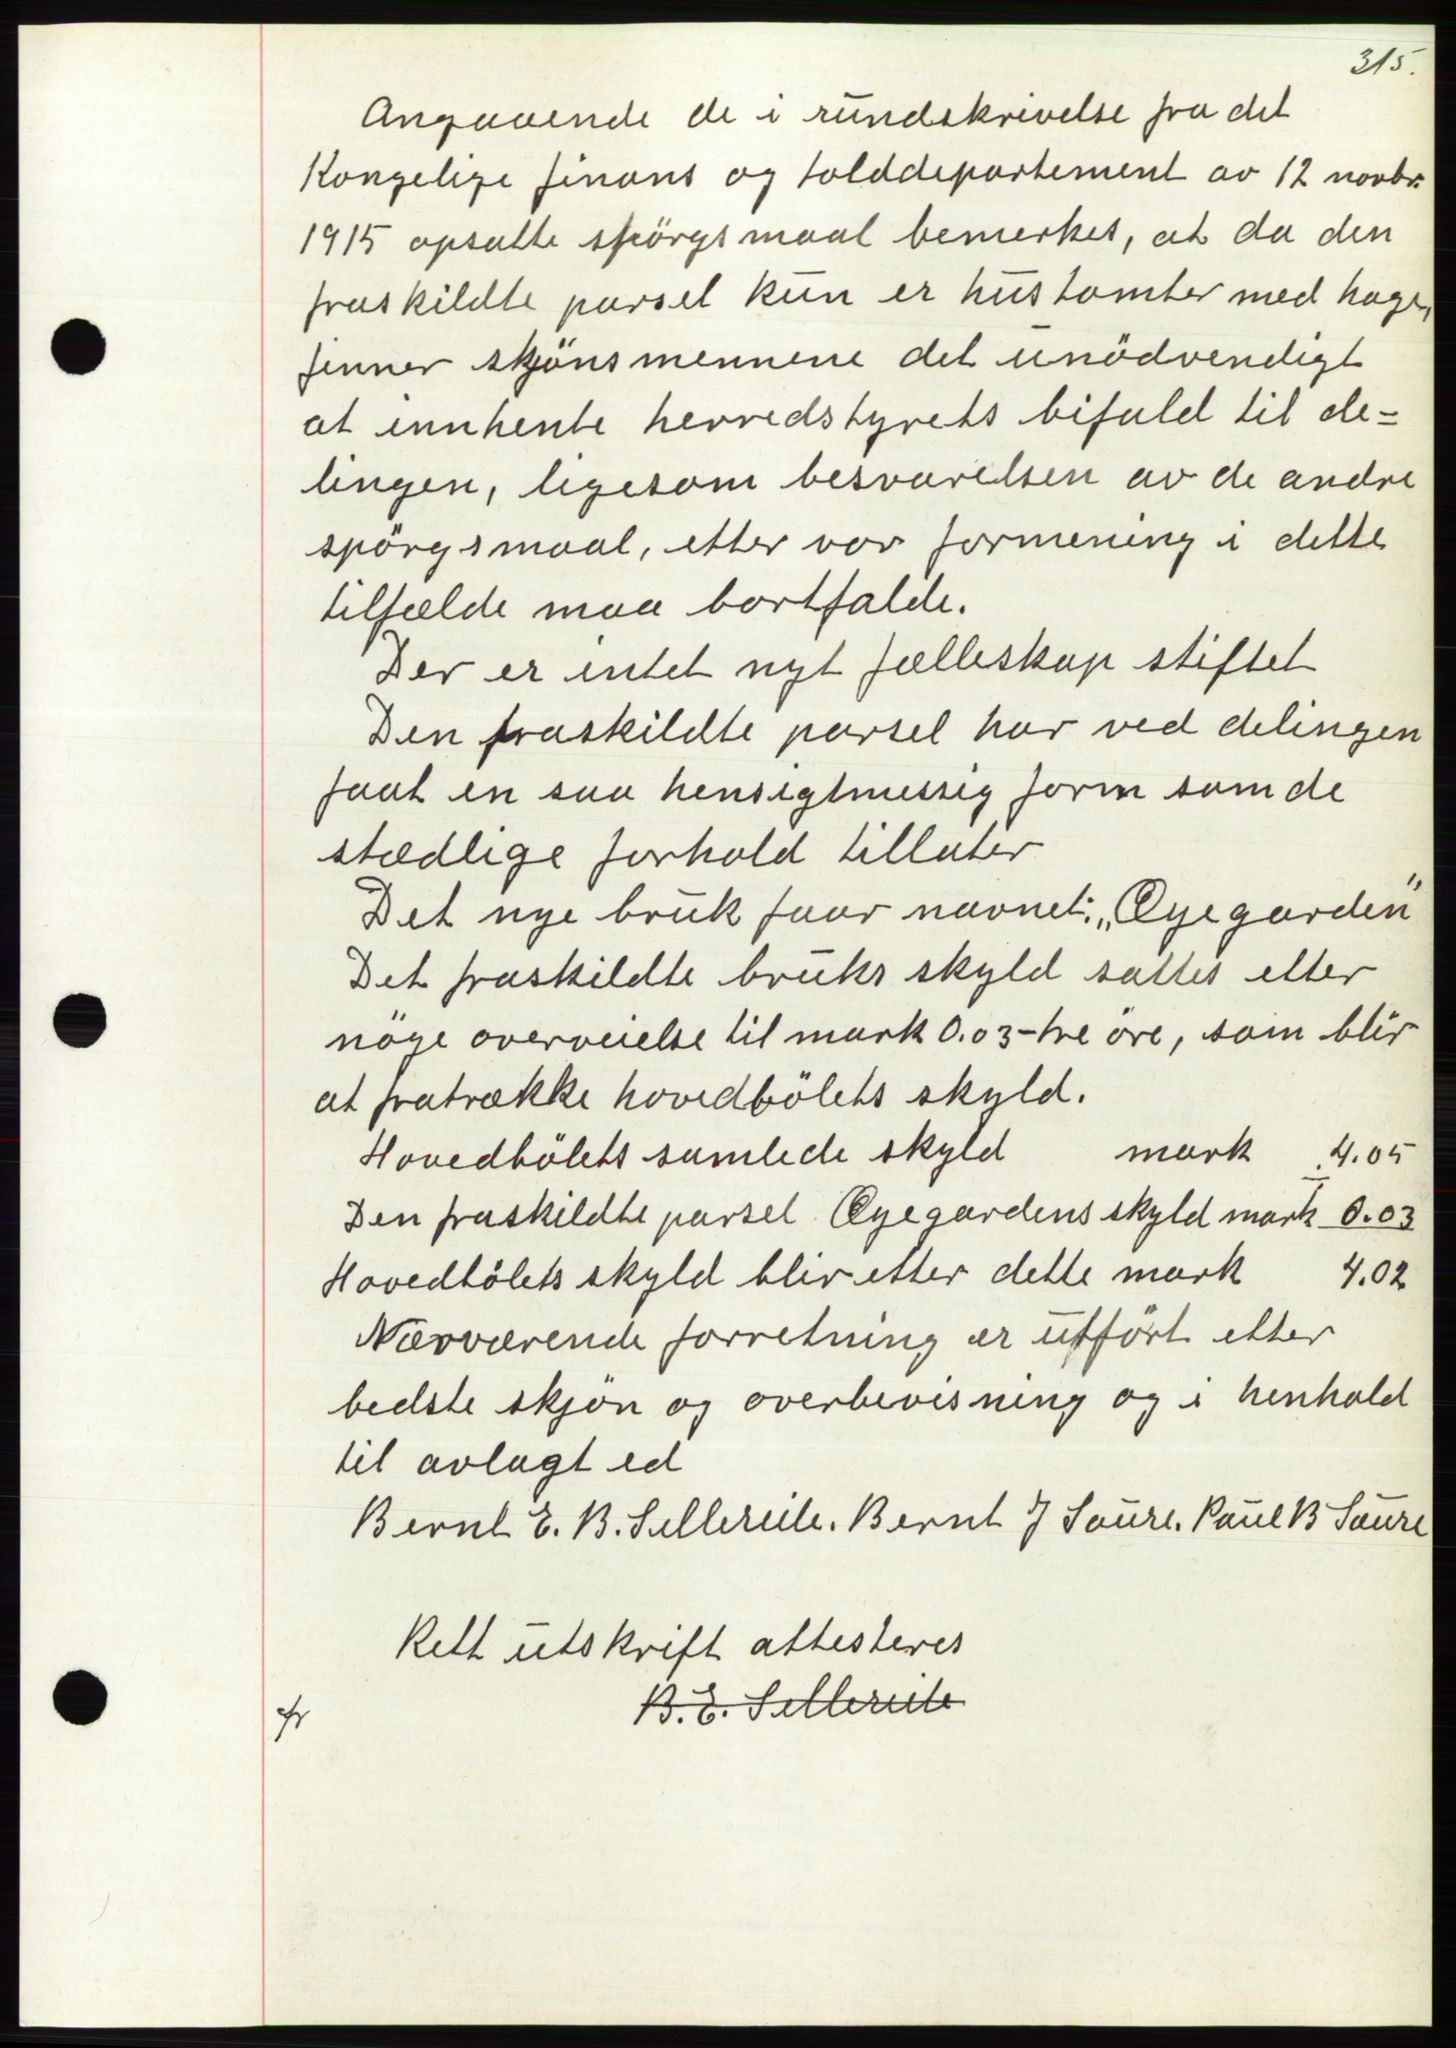 315.
Angaaende de i rundskrivelse fra det
Kongelige finans og tolddepartement av 12 novbr.
1915 opsatte spörgsmaal bemerkes, at da den
fraskildte parsel kun er hustomter med hage,
finner skjönsmennene det unödvendigt
at innhente herredstyrets bifald til de=
lingen, ligesom besvarelsen av de andre
spörgsmaal, etter vor formening i dette
tilfælde maa bortfalde.
Der er intet nyt fælleskap stiftet
Den fraskildte parsel har ved delingen
faat en saa hensigtmessig form som de
stædlige forhold tillater
Det nye bruk faar navnet: „Øyegarden"
Det fraskildte bruks skyld sattes etter
nöye overveielse til mark 0.03 - tre öre, som blir
at fratrække hovedbölets skyld.
Hovedbölets samlede skyld mark 4.05
Den fraskildte parsel Øyegardens skyld mark 0.03
Hovedbölets skyld blir etter dette mark 4.02
Nærværende forretning er utfört etter
bedste skjön og overbevisning og i henhold
til avlagt ed
Bernt E. B. Sellereite. Bernt J Saure. Paul B Saure
Rett utskrift attesteres
B. E. Sellereite
fr